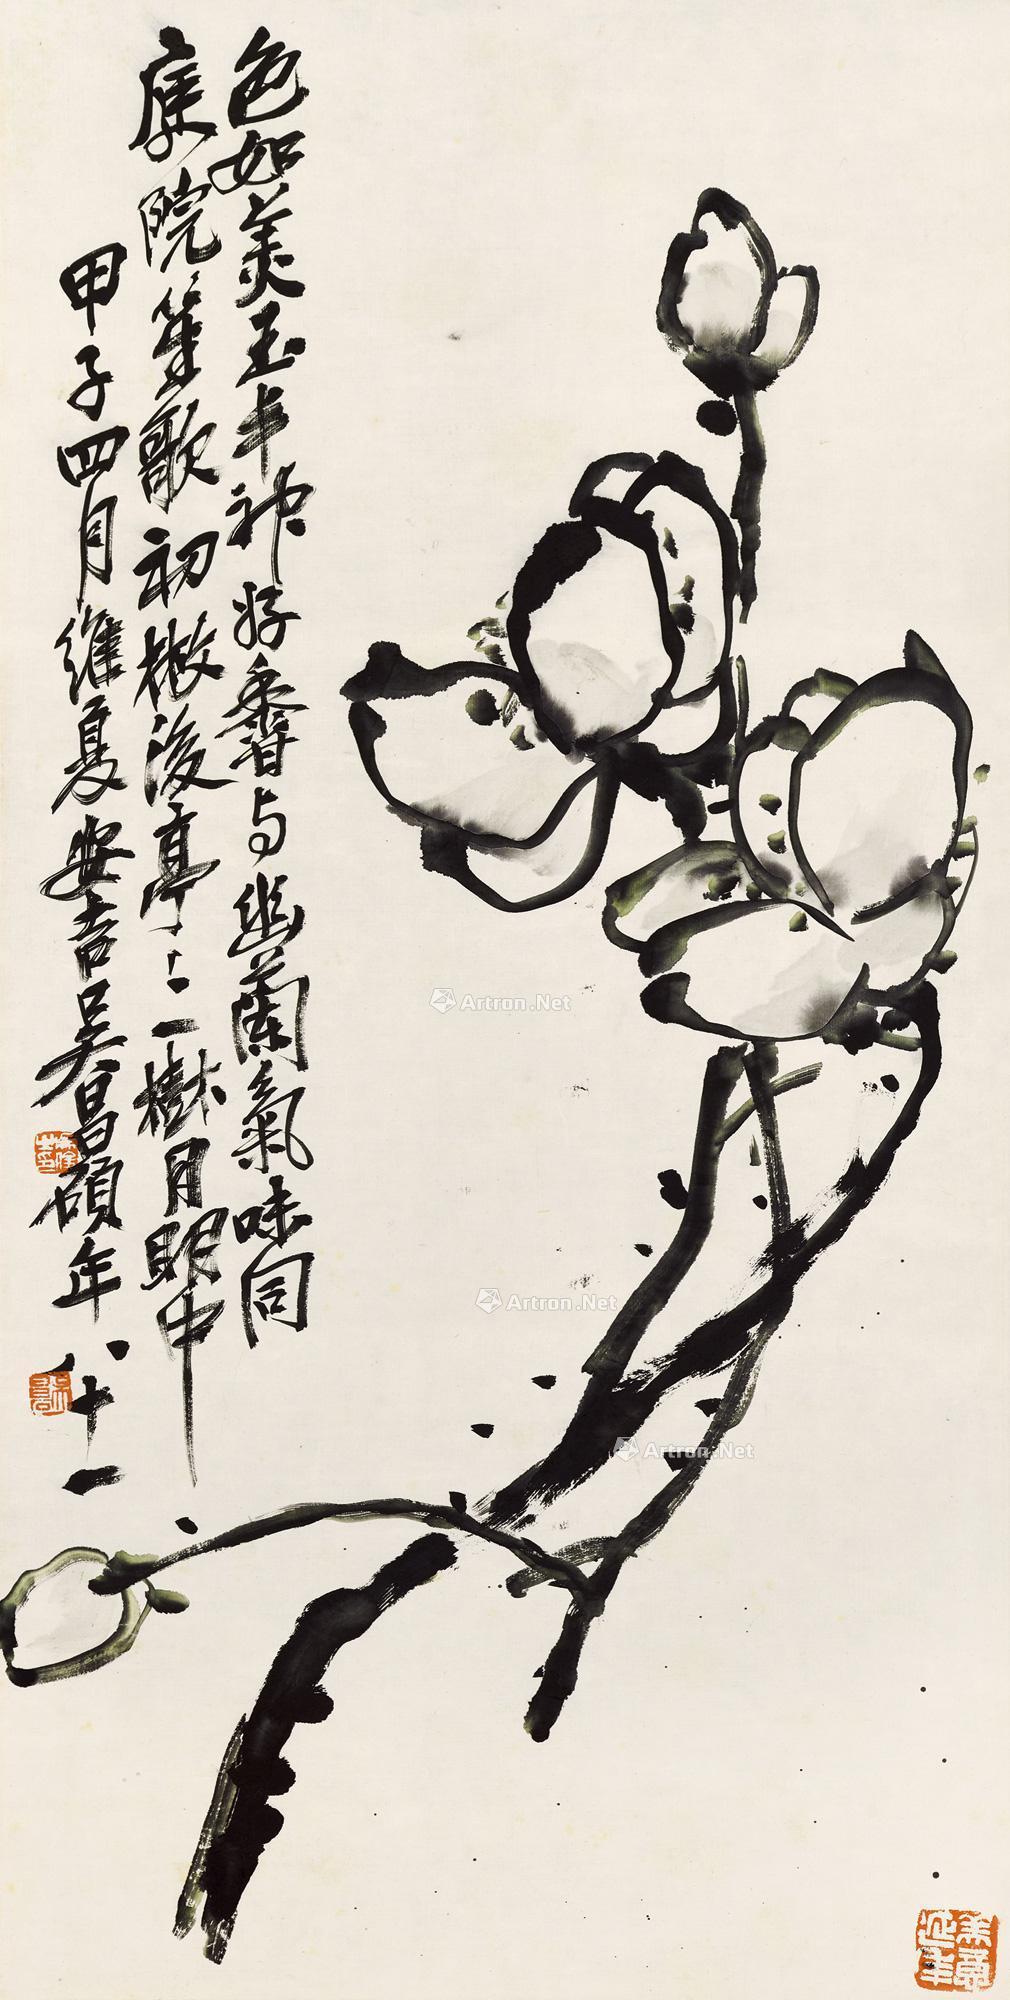 色如美玉丰神好香与幽兰氣味同
深院笙歌初撤後亭二一樹月明中
甲子四月維夏安吉吴昌碩年八十一
Artron.Net
Artron.Net
Artron.Net
美意延年